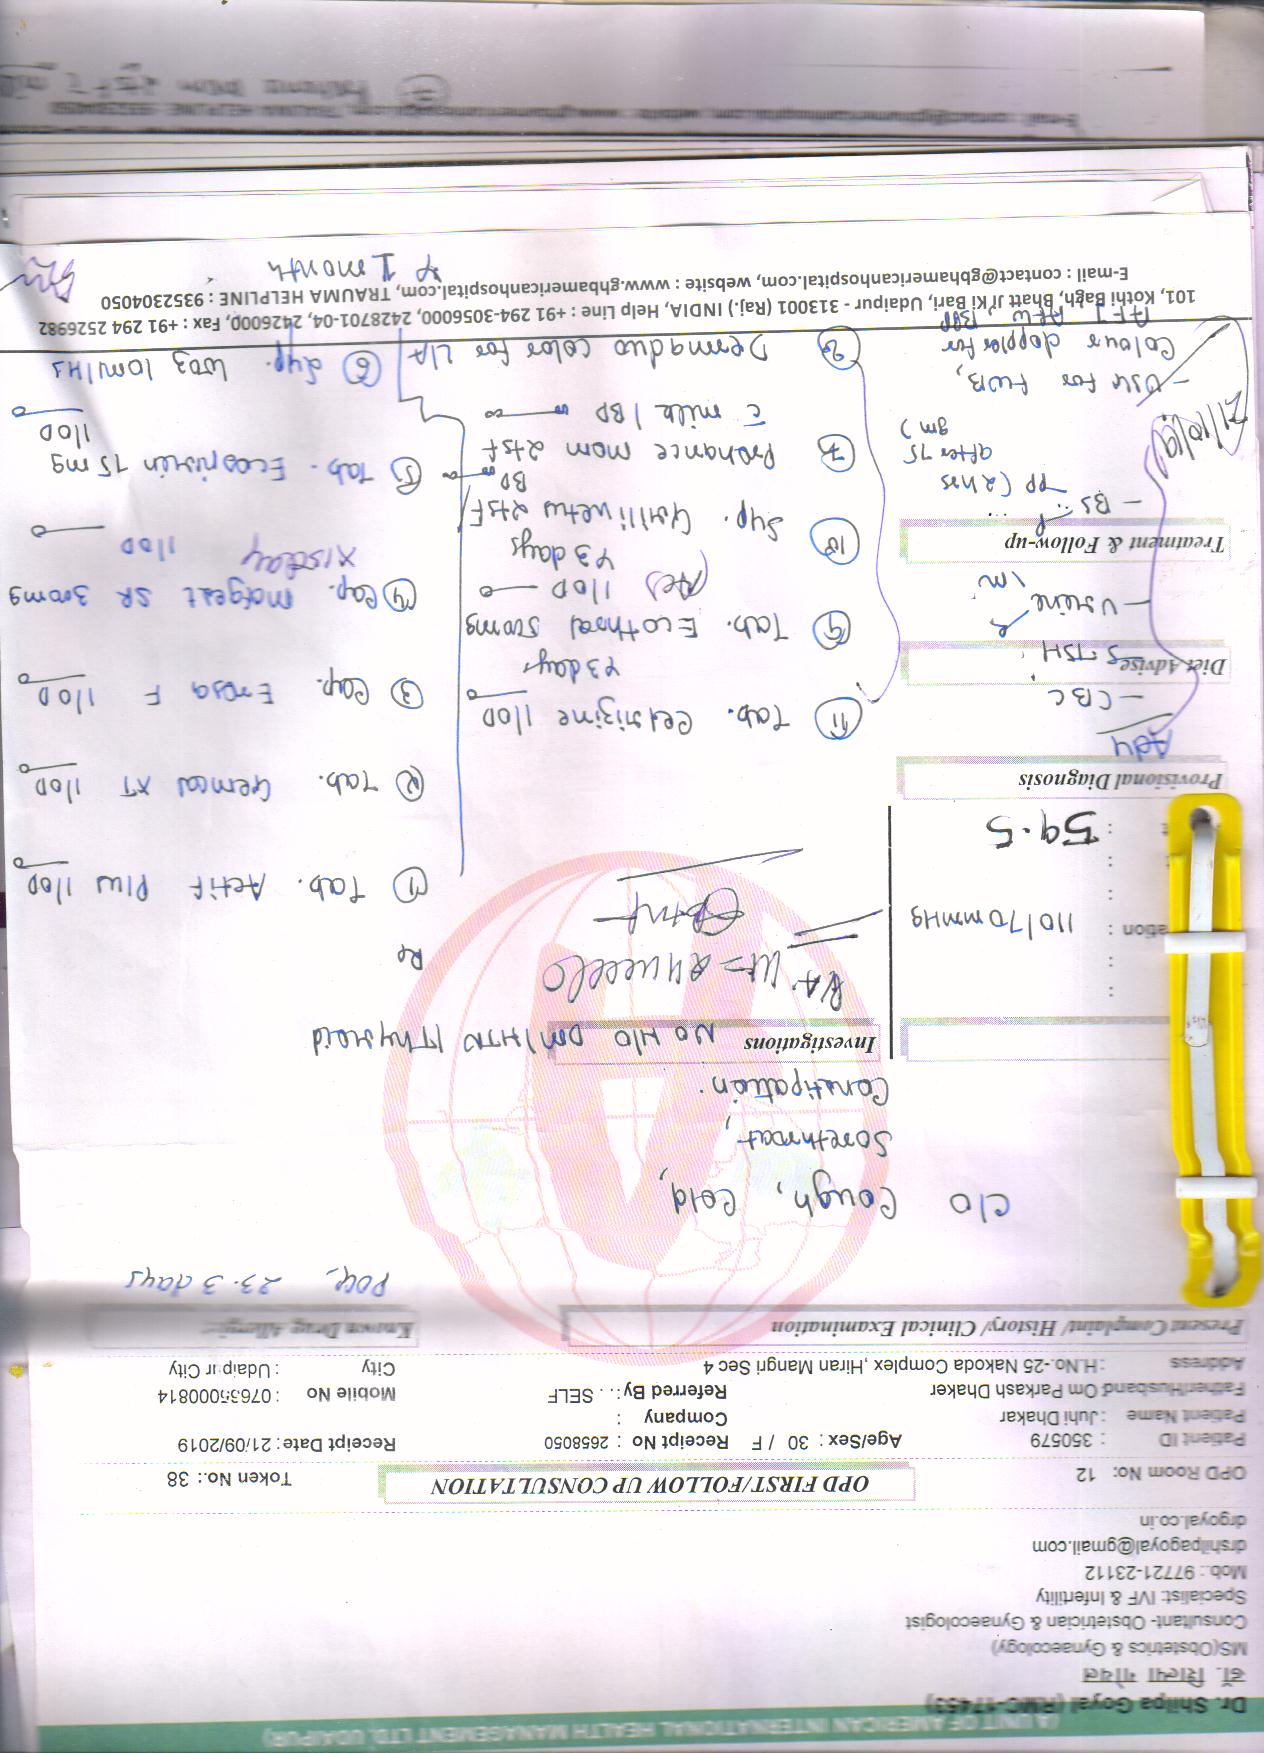 (A UNIT OF AMERICAN INTERNATIONAL HEALTH MANAGEMENT LTD, UDAIPUR)
Dr. Shilpa Goyal (RMC-17453)
डॉ. शिल्पा गोयल
MS(Obstetrics & Gynaecology)
Consultant- Obstetrician & Gynaecologist
Specialist: IVF & Infertility
Mob.: 97721-23112
drshilpagoyal@gmail.com
drgoyal.co.in
OPD Room No: 12
OPD FIRST/FOLLOW UP CONSULTATION
Token No.: 38
Patient ID : 350579
Age/Sex : 30 / F
Receipt No : 2658050
Receipt Date : 21/09/2019
Patient Name : Juhi Dhakar
Company :
Father/Husband Om Parkash Dhaker
Referred By : . . SELF
Mobile No : 07635000814
Address : H.No.-25 Nakoda Complex ,Hiran Mangri Sec 4
City : Udaipur City
Present Complaint/ History/ Clinical Examination
Known Drug Allergie
POG- 23.3 days
C/O Cough, Cold,
Sorethroat,
Constipation.
Investigations
NO H/O DM/HTN/Thyroid
P/A. Ut=24
ation : 110/70 mmHg
t : 59.5
Rx
① Tab. Actif Plus 1/OD
② Tab. Gemcal XT 1/OD
③ Cap. F 1/OD
④ Cap. SR 300mg
1/OD
⑤ Tab. Ecosprin 75 mg
1/OD
⑥ Syp. 10ml/HS
⑪ Tab. Cetrizine 1/OD
x 3 days
⑨ Tab. 500mg
1/OD
x 3 days
⑩ Syp. 2tsf/
BD
Prohance mom 2tsf
c̄ milk / BD
color for L/A
x 1 month
Provisional Diagnosis
Adv
- CBC
Diet Advise
S. TSH
- Urine
Treatment & Follow-up
- BS
PP (2 hrs
after 75
gm)
- USG for FWB,
Colour doppler for
21/10/19
101, Kothi Bagh, Bhatt Ji Ki Bari, Udaipur - 313001 (Raj.) INDIA, Help Line : +91 294-3056000, 2428701-04, 2426000, Fax : +91 294 2526982
E-mail : contact@gbhamericanhospital.com, website : www.gbhamericanhospital.com, TRAUMA HELPLINE : 9352304050